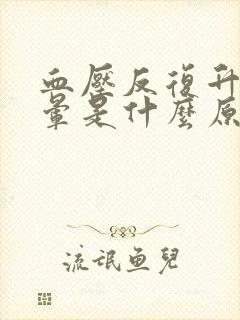 血壓反復升
暈是什麼原
流氓鱼兒